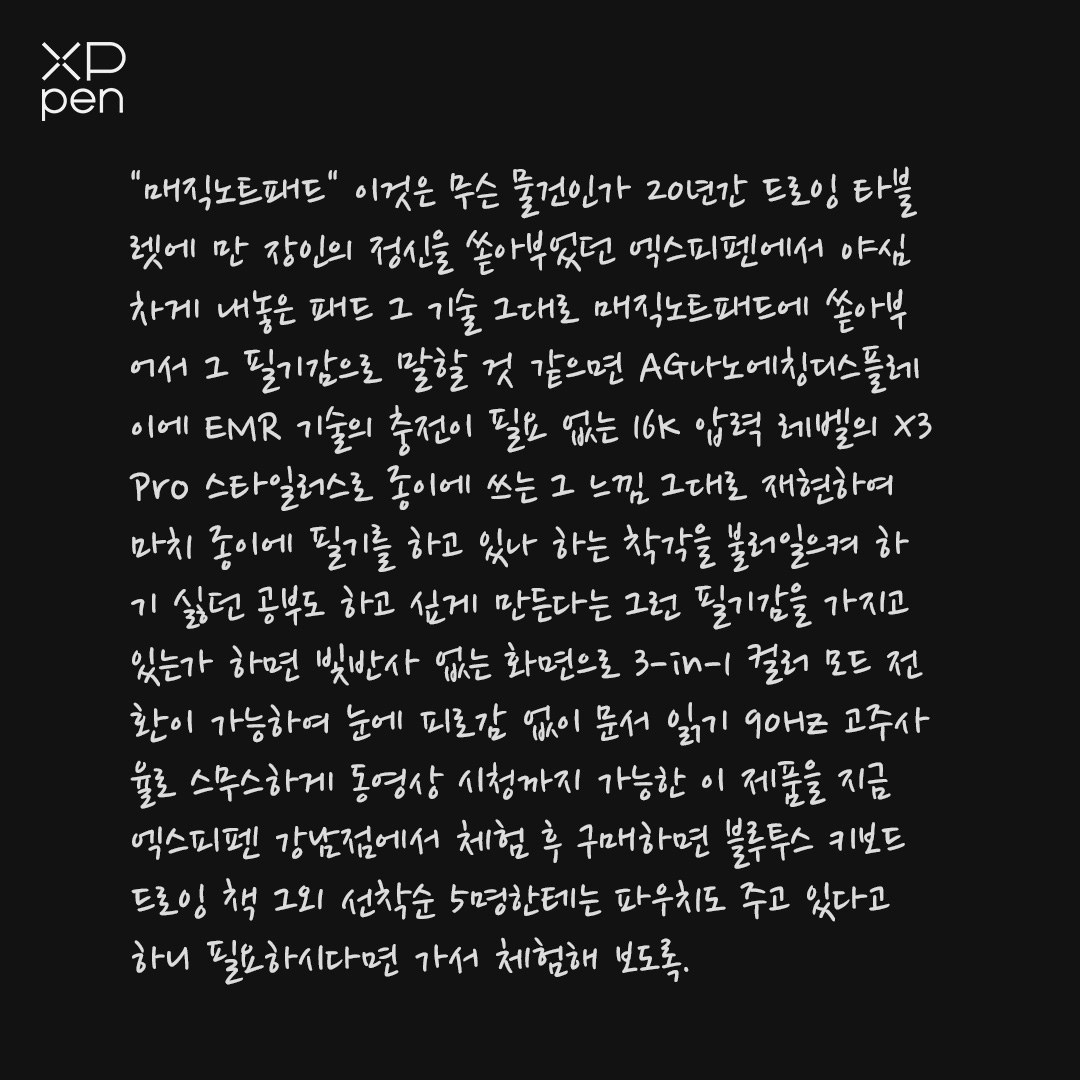 XP
pen
"매직노트패드" 이것은 무슨 물건인가 20년간 드로잉 타블
렛에 만 장인의 정신을 쏟아부었던 엑스피펜에서 야심
차게 내놓은 패드 그 기술 그대로 매직노트패드에 쏟아부
어서 그 필기감으로 말할 것 같으면 AG나노에칭디스플레
이에 EMR 기술의 충전이 필요 없는 16K 압력 레벨의 X3
Pro 스타일러스로 종이에 쓰는 그 느낌 그대로 재현하여
마치 종이에 필기를 하고 있나 하는 착각을 불러일으켜 하
기 싫던 공부도 하고 싶게 만든다는 그런 필기감을 가지고
있는가 하면 빛반사 없는 화면으로 3-in-1 컬러 모드 전
환이 가능하여 눈에 피로감 없이 문서 읽기 90HZ 고주사
율로 스무스하게 동영상 시청까지 가능한 이 제품을 지금
엑스피펜 강남점에서 체험 후 구매하면 블루투스 키보드
드로잉 책 그외 선착순 5명한테는 파우치도 주고 있다고
하니 필요하시다면 가서 체험해 보도록.